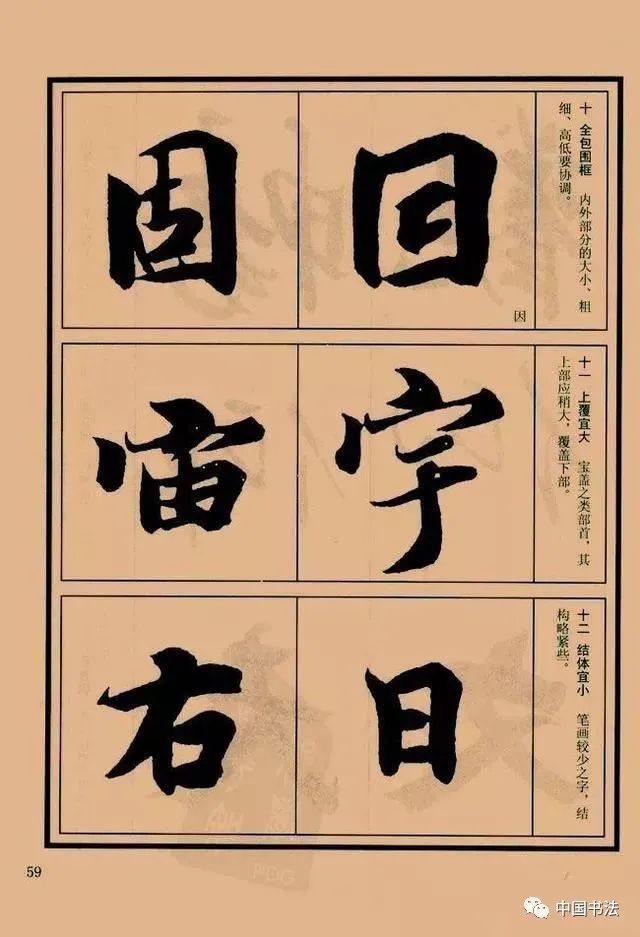 十 全包围框 内外部分的大小、粗
细、高低要协调。
因
因
固
十一 上覆宜大 宝盖之类部首，其
上部应稍大，覆盖下部。
宇
宙
十二 结体宜小 笔画较少之字，结
构略紧些。
日
右
PDG
59
中国书法